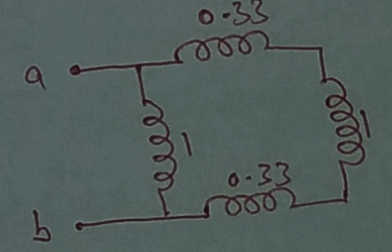 0.33
a
1
1
0.33
b